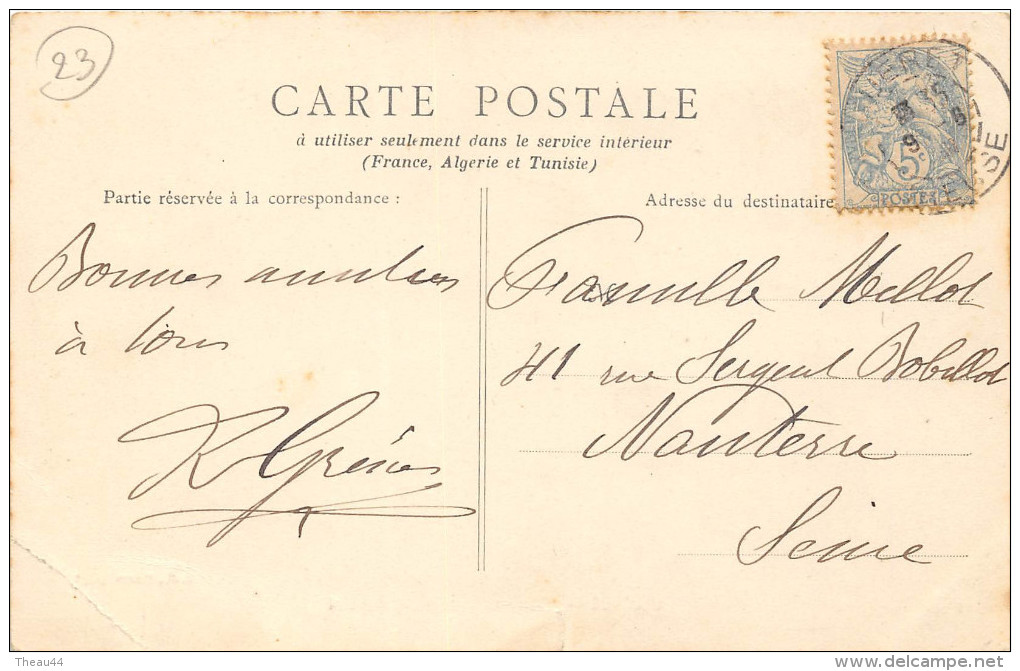 23
CARTE POSTALE
à utiliser seulement dans le service intérieur
(France, Algerie et Tunisie)
Partie réservée à la correspondance :
Adresse du destinataire
5c
POSTES
Bonnes amitiés
à tous
Famille Mellot
41 rue Sergent Bobillot
Nanterre
Seine
Theau44
www.delcampe.net